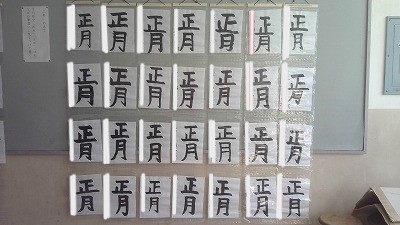 正月 正月 正月 正月 正月 正月 正月
正月 正月 正月 正月 正月 正月 正月
正月 正月 正月 正月 正月 正月 正月
正月 正月 正月 正月 正月 正月 正月